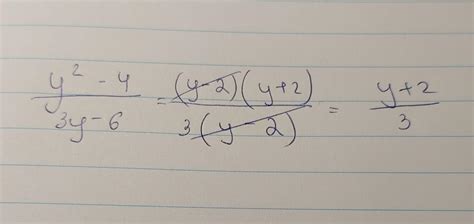 (y² - 4)/(3y - 6) = ((y-2)(y+2))/(3(y-2)) = (y+2)/3